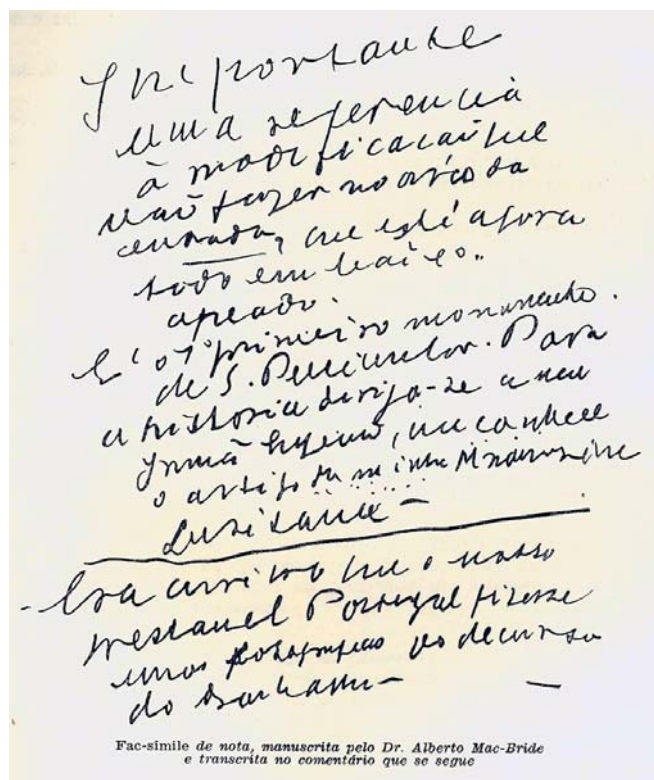 Importante
uma referencia
à modificação que
vão fazer no arco da
entrada, que está agora
todo em baixo..
apeado.
E' o 1º primeiro monumento.
de S. Para
a historia dirija-se a meu
Irmão Eugenio, que conhece
o artigo da minha
Lusitania -
- Era curioso que o nosso
prestavel Portugal fizesse
umas photographias no decurso
do -
Fac-simile de nota, manuscrita pelo Dr. Alberto Mac-Bride
e transcrita no comentário que se segue